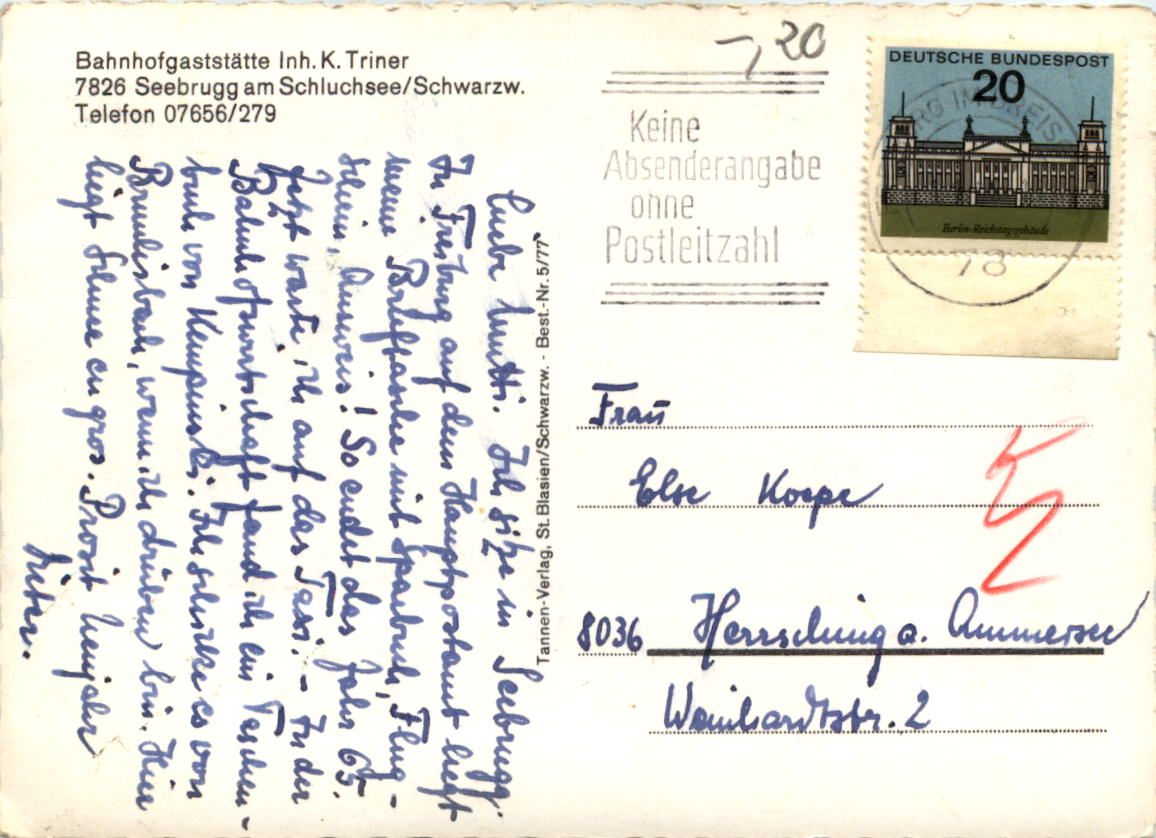 Bahnhofgaststätte Inh. K. Triner
7826 Seebrugg am Schluchsee/Schwarzw.
Telefon 07656/279
-,20
Keine
Absenderangabe
ohne
Postleitzahl
DEUTSCHE BUNDESPOST
20
Berlin-Reichstagsgebäude
78
Liebe Mutti. Ich sitze in Seebrugg.
In Freiburg auf dem Hauptpostamt liegt
meine Brieftasche mit Sparbuch, Flug-
schein, Ausweis! So endet das Jahr 65.
Jetzt warte ich auf das Taxi. – In der
Bahnhofwirtschaft fand ich ein Taschen-
buch von Kempinski. Ich schicke es von
wenn ich drüben bin. Hier
liegt Schnee en gros. Prosit Neujahr
Dieter.
Tannen-Verlag, St. Blasien/Schwarzw. - Best.-Nr. 5/77
Frau
Else Koepe
8036 Herrsching a. Ammersee
Weinhardtstr. 2